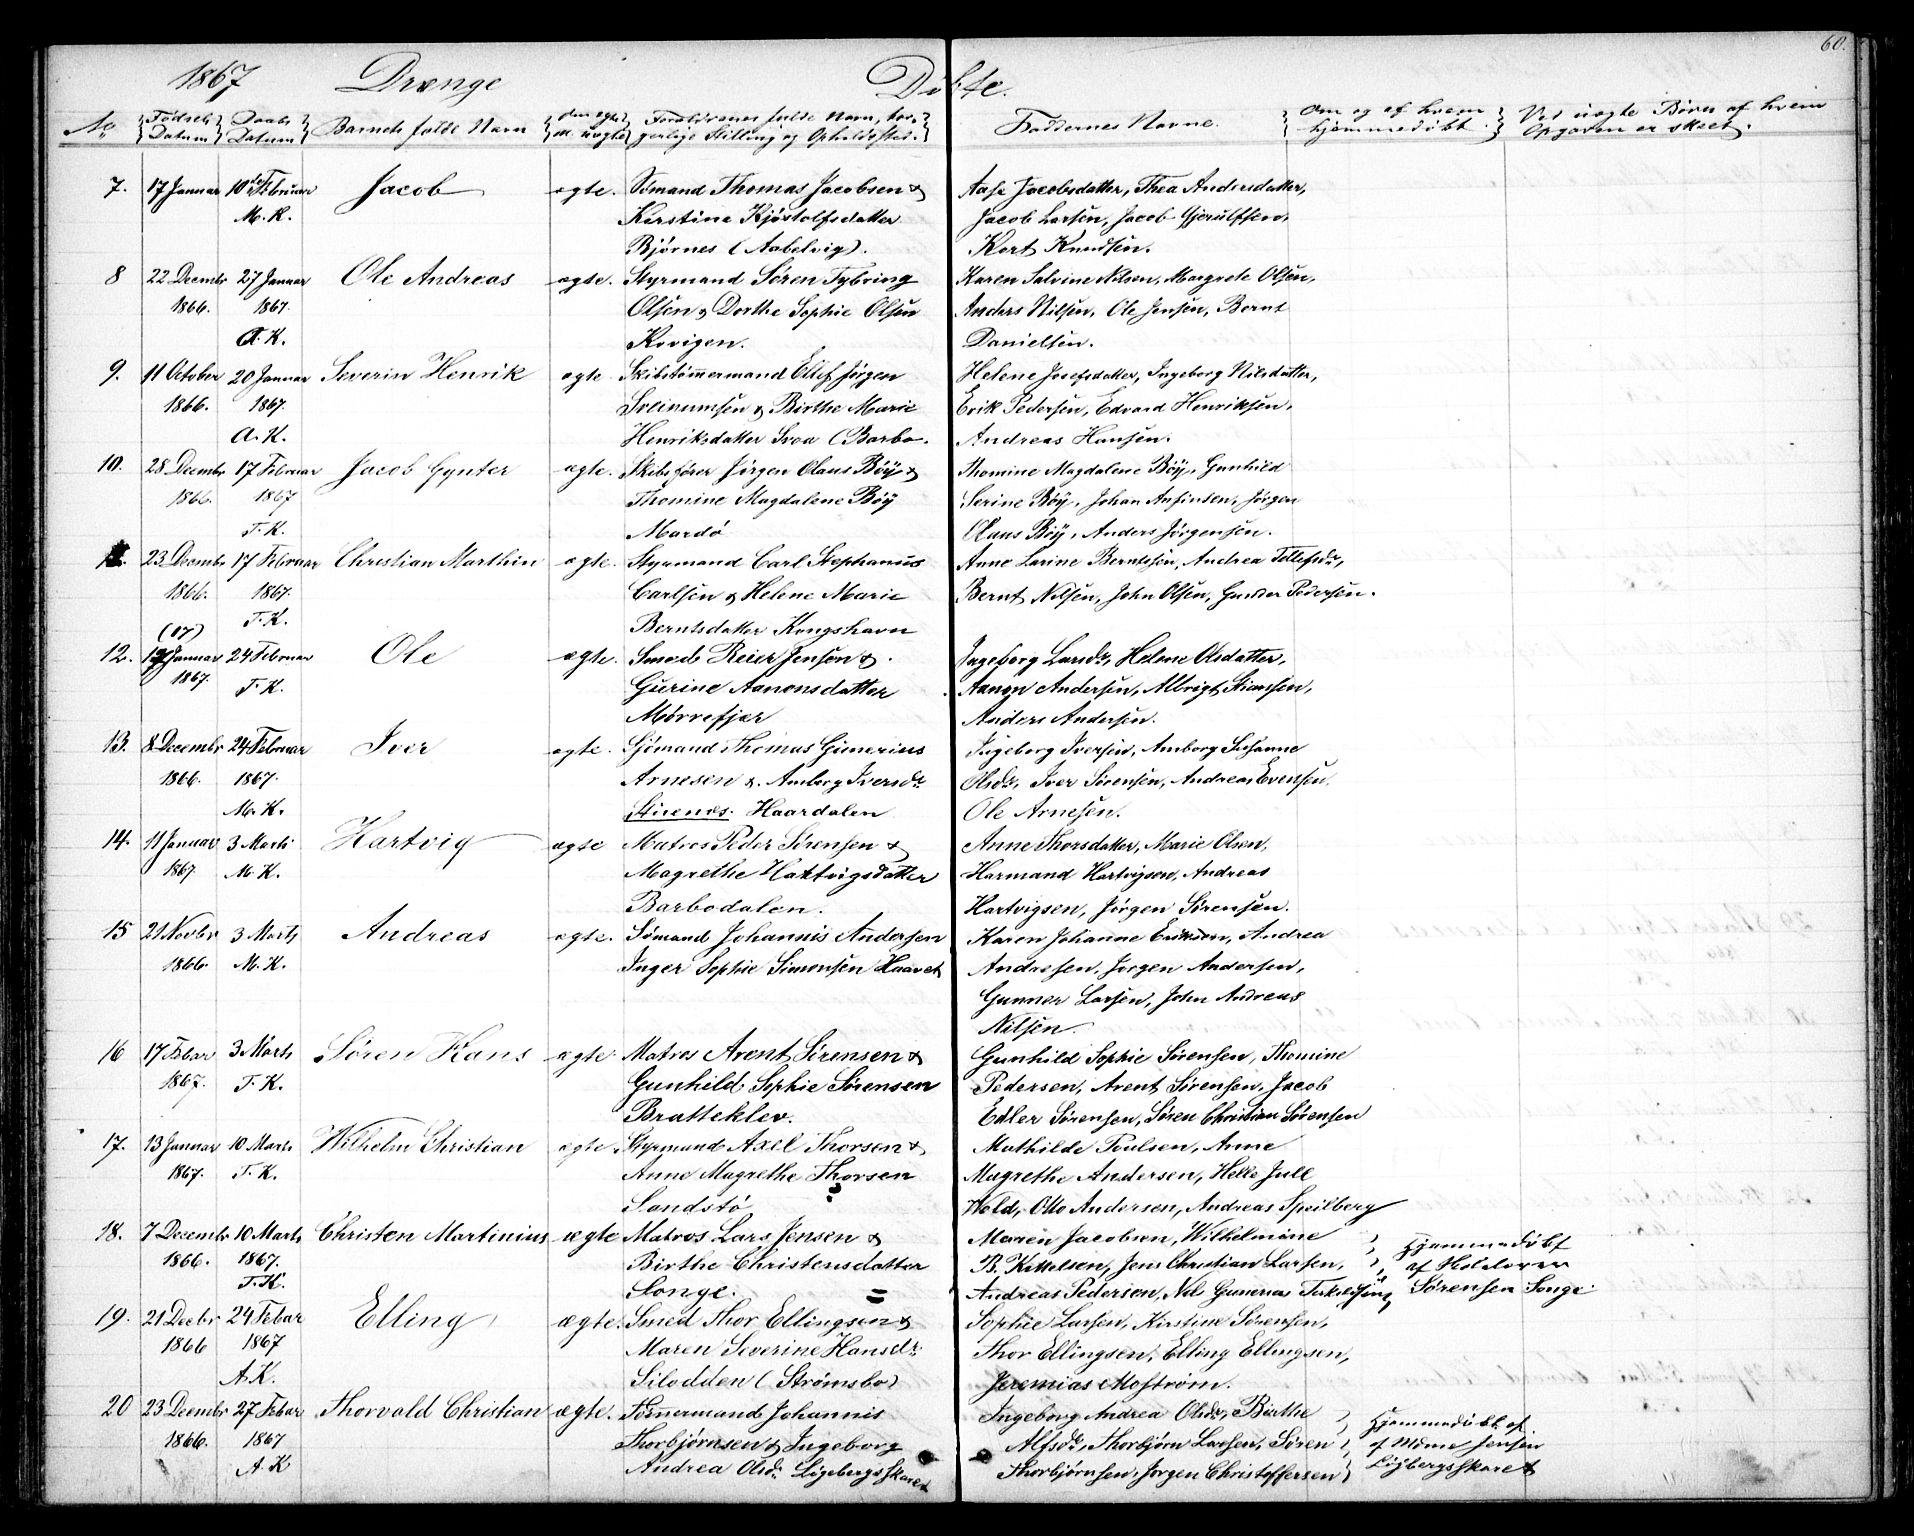 60.
1867 Drenge Døbte.
No Fødsels Datum Daabs Datum Barnets fulde Navn om ægte el. uægte Forældrenes fulde Navn, borgerlige Stilling og Opholdssted. Faddernes Navne. Om og af hvem hjemmedøbt. Ved uægte Børn af hvem Opgaven er skeet.
7. 17 Januar 10de Februar Jacob ægte. Sømand Thomas Jacobsen & Aase Jacobsdatter, Thea Andersdatter,
M. K. Kirstine Kjøstolfsdatter Jacob Larsen, Jacob Gjerulfsen,
Bjørnes (Aabelvig). Kort Knudsen.
8 22 Decembr 27 Januar Ole Andreas ægte. Styrmand Søren Fybring Karen Salvine Nilsen, Margrete Olsen,
1866. 1867. Olsen & Dorthe Sophie Olsen Anders Nilsen, Ole Jensen, Bernt
A. K. Kovigen. Danielsen.
9. 11 October 20 Januar Severin Henrik ægte Skibstømmermand Ellef Jørgen Helene Josefsdatter, Ingeborg Nilsdatter,
1866. 1867. Sveinumsen & Birthe Marie Erik Pedersen, Edvard Henriksen,
A. K. Henriksdatter Svoa (Barbo. Andreas Hansen.
10. 28 Decembr 17 Februar Jacob Gynter ægte. Skibsfører Jørgen Olaus Bøy & Thomine Magdalene Bøy, Gunhild
1866. 1867 Thomine Magdalene Bøy Serine Bøy, Johan Anfinsen, Jørgen
T. K. Mardø Olaus Bøy, Anders Jørgensen.
23 Decembr 17 Februar Christian Marthin ægte. Styrmand Carl Stephanius Anne Larine Berntsen, Andrea Tellefsdr,
1866. 1867. Carlsen & Helene Marie Bernt Nilsen, John Olsen, Gunder Pedersen.
(17) T. K. Berntsdatter Kongshavn
12. Januar 24 Februar Ole ægte. Smed Reier Jensen & Ingeborg Larsdr, Helene Olsdatter,
1867. T. K. Gurine Aanonsdatter Aanon Andersen, Albrigt Simonsen,
Mørrefjær Anders Andersen.
13. 8 Decembr 24 Februar Iver ægte. Sjømand Thomas Gunerius Ingeborg Iversen, Amborg Susanne
1866. 1867. Arnesen & Amborg Iversdr Olsdr, Iver Sørensen, Andreas Evensen,
M. K. Stuenes. Haardalen Ole Arnesen.
14. 11 Januar 3 Marts Hartvig ægte Matros Peder Sørensen & Anne Thorsdatter, Marie Olsen,
1867 M. K. Magrethe Hartvigsdatter Harmand Hartvigsen, Andreas
Barbodalen. Hartvigsen, Jørgen Sørensen.
15 21 Novbr 3 Marts Andreas ægte. Sømand Johannis Andersen Karen Johanne Eriksen, Andrea
1866. M. K. Inger Sophie Simonsen Haavet Andresen, Jørgen Andersen,
Gunner Larsen, John Andreas
Nilsen.
16 17 Febar 3 Marts Søren Hans ægte. Matros Arent Sørensen & Gunhild Sophie Sørensen, Thomine
1867. T. K. Gunhild Sophie Sørensen Pedersen, Arent Sørensen, Jacob
Bratteklev. Edler Sørensen, Søren Christian Sørensen
17. 13 Januar 10 Marts Wilhelm Christian ægte. Styrmand Axel Thorsen & Mathilde Poulsen, Anne
1867. T. K. Anne Magrethe Thorsen Magrethe Andersen, Helle Jull
Sandstø Hold, Otto Andersen, Andreas Speilberg
18. 7 Decembr 10 Marts Christen Martinius ægte Matros Lars Jensen & Maren Jacobsen, Wilhelmine Hjemmedøbt
1866. 1867. Birthe Christensdatter B. Kittelsen, Jens Christian Larsen, af
T. K. Songe. Andreas Pedersen, Nils Gunerius Sørensen Songe.
19. 21 Decbr 24 Febar Elling ægte. Smed Thor Ellingsen & Sophie Larsen, Kirstine Sørensen,
1866 1867 Maren Severine Hansdr. Thor Ellingsen, Elling Ellingsen,
A. K. Silodden (Strømsbo) Jeremias Mostrøm.
20 23 Decembr 27 Febar Thorvald Christian ægte. Tømmermand Johannis Ingeborg Andrea Olsdr, Birthe Hjemmedøbt af
1866. 1867 Thorbjørnsen & Ingeborg Alfsdr, Thorbjørn Larsen, Søren af Jensen
A. K Andrea Olsdr. Løgebergsskaret Thorbjørnsen, Jørgen Christoffersen Løgbergsskaret